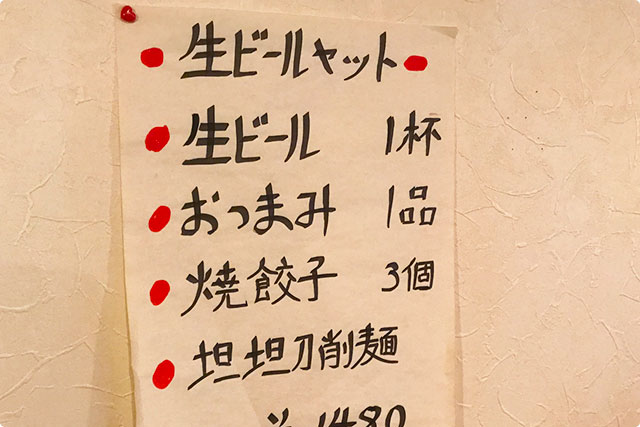 生ビールセット
生ビール 1杯
おつまみ 1品
焼餃子 3個
坦坦刀削麺
¥1480